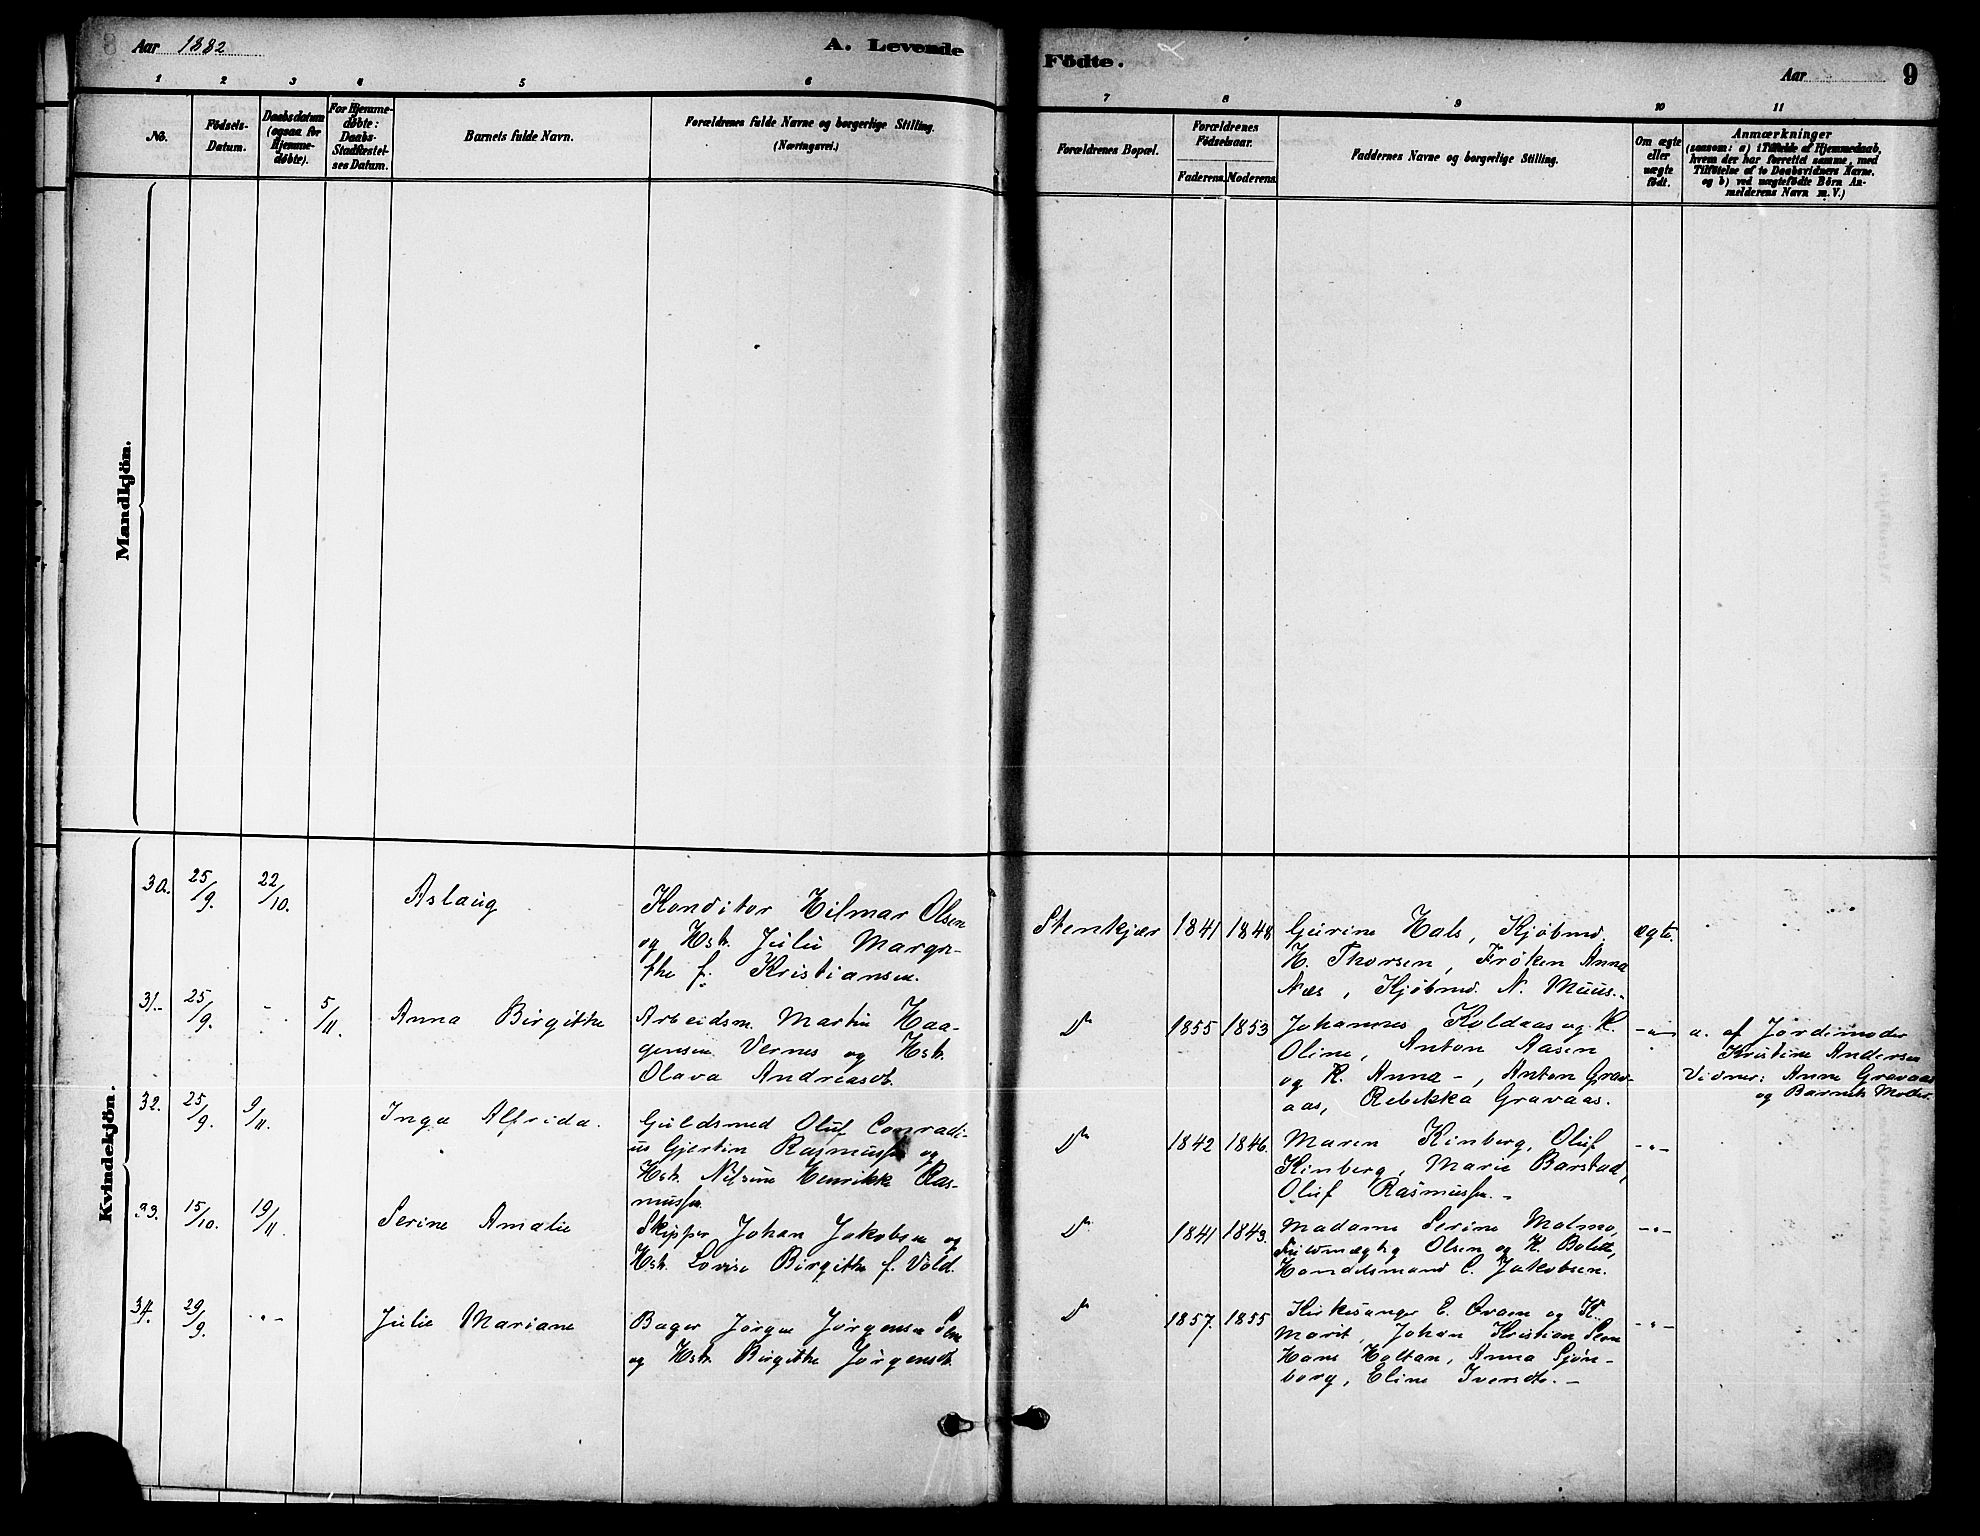 8 Aar 1882 A. Levende Födte. Aar 9
1 2 3 4 5 6 7 8 9 10 11
No.
Födsels-
Datum.
Daabsdatum
(ogsaa for
Hjemme-
døbte).
For Hjemme-
døbte:
Daabs-
Stadfæstel-
ses Datum.
Barnets fulde Navn.
Forældrenes fulde Navne og borgerlige Stilling.
(Næringsvei.)
Forældrenes Bopæl.
Forældrenes
Födselsaar.
Faderens. Moderens.
Faddernes Navne og borgerlige Stilling.
Om ægte
eller
uægte
födt.
Anmærkninger
(saasom: a) i Tilfælde af Hjemmedaab,
hvem der har forrettet samme, med
Tilföielse af to Daabsvidners Navne.
og b) ved uægtefödte Börn An-
melderens Navn m. V.)
Mandkjön.
Kvindekjön.
30. 25/9. 22/10. Aslaug
Konditor Hilmar Olsen
og Hstr. Julie Margre-
the f. Kristiansen.
Stenkjær 1841 1848
Gurine Hals, Kjøbmd.
H. Thorsen, Frøken Anna
Næs, Kjøbmd. N. Muus.
ægte.
31. 25/9. - 5/11. Anna Birgitte
Arbeidsm. Martin Haa-
gensen Vernes og Hstr.
Olava Andreasdt.
Do 1855 1853
Johannes Koldaas og K.
Oline, Anton Aasen
og K. Anna -, Anton Grav-
aas, Rebekka Gravaas.
-"-
a. af Jordemoder
Kristine Andersen
Vidner: Anne Gravaas
og Barnets Moder.
32. 25/9. 9/11. Inga Alfrida.
Guldsmed Oluf Conradi-
us Gjertin Rasmussen og
Hstr. Nilsine Henrikke Ras-
mussen.
Do 1842 1846.
Maren Kinberg, Oluf
Kinberg, Marie Barstad,
Oluf Rasmussen. -
-"-
33. 15/10. 19/11. Serine Amalie
Skipper Johan Jakobsen og
Hstr. Lovise Birgitte f. Vold.
Do 1841 1843.
Madame Serine Malmo,
Fuldmægtig Olsen og K. Bolette,
Handelsmand C. Jakobsen.
-"-
34. 29/9. -"- Julie Mariane
Bager Jørgen Jørgensen Sem
og Hstr. Birgitte Jørgensdt.
Do 1857. 1855
Kirkesanger E. Qvam og K.
Marit, Johan Kristian Sem
Hans Holtan, Anna Sjøn-
borg, Eline Iversdt. -
-"-